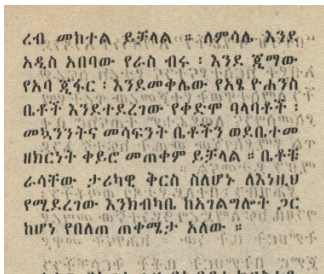 ረብ መከተል ይቻላል ። ለምሳሌ እንደ
አዲስ አበባው የራስ ብሩ ፡ እንደ ጂማው
የአባ ጂፋር ፡ እንደመቅሌው የአፄ ዮሐንስ
ቤቶች እንደተደረገው የቀድሞ ባላባቶች ፡
መኳንንትና መሳፍንት ቤቶችን ወደቤተመ
ዘክርነት ቀይሮ መጠቀም ይቻላል ። ቤቶቹ
ራሳቸው ታሪካዊ ቅርስ ስለሆኑ ለእነዚህ
የሚደረገው እንክብካቤ ከአገልግሎት ጋር
ከሆነ የበለጠ ጠቀሜታ አለው ።